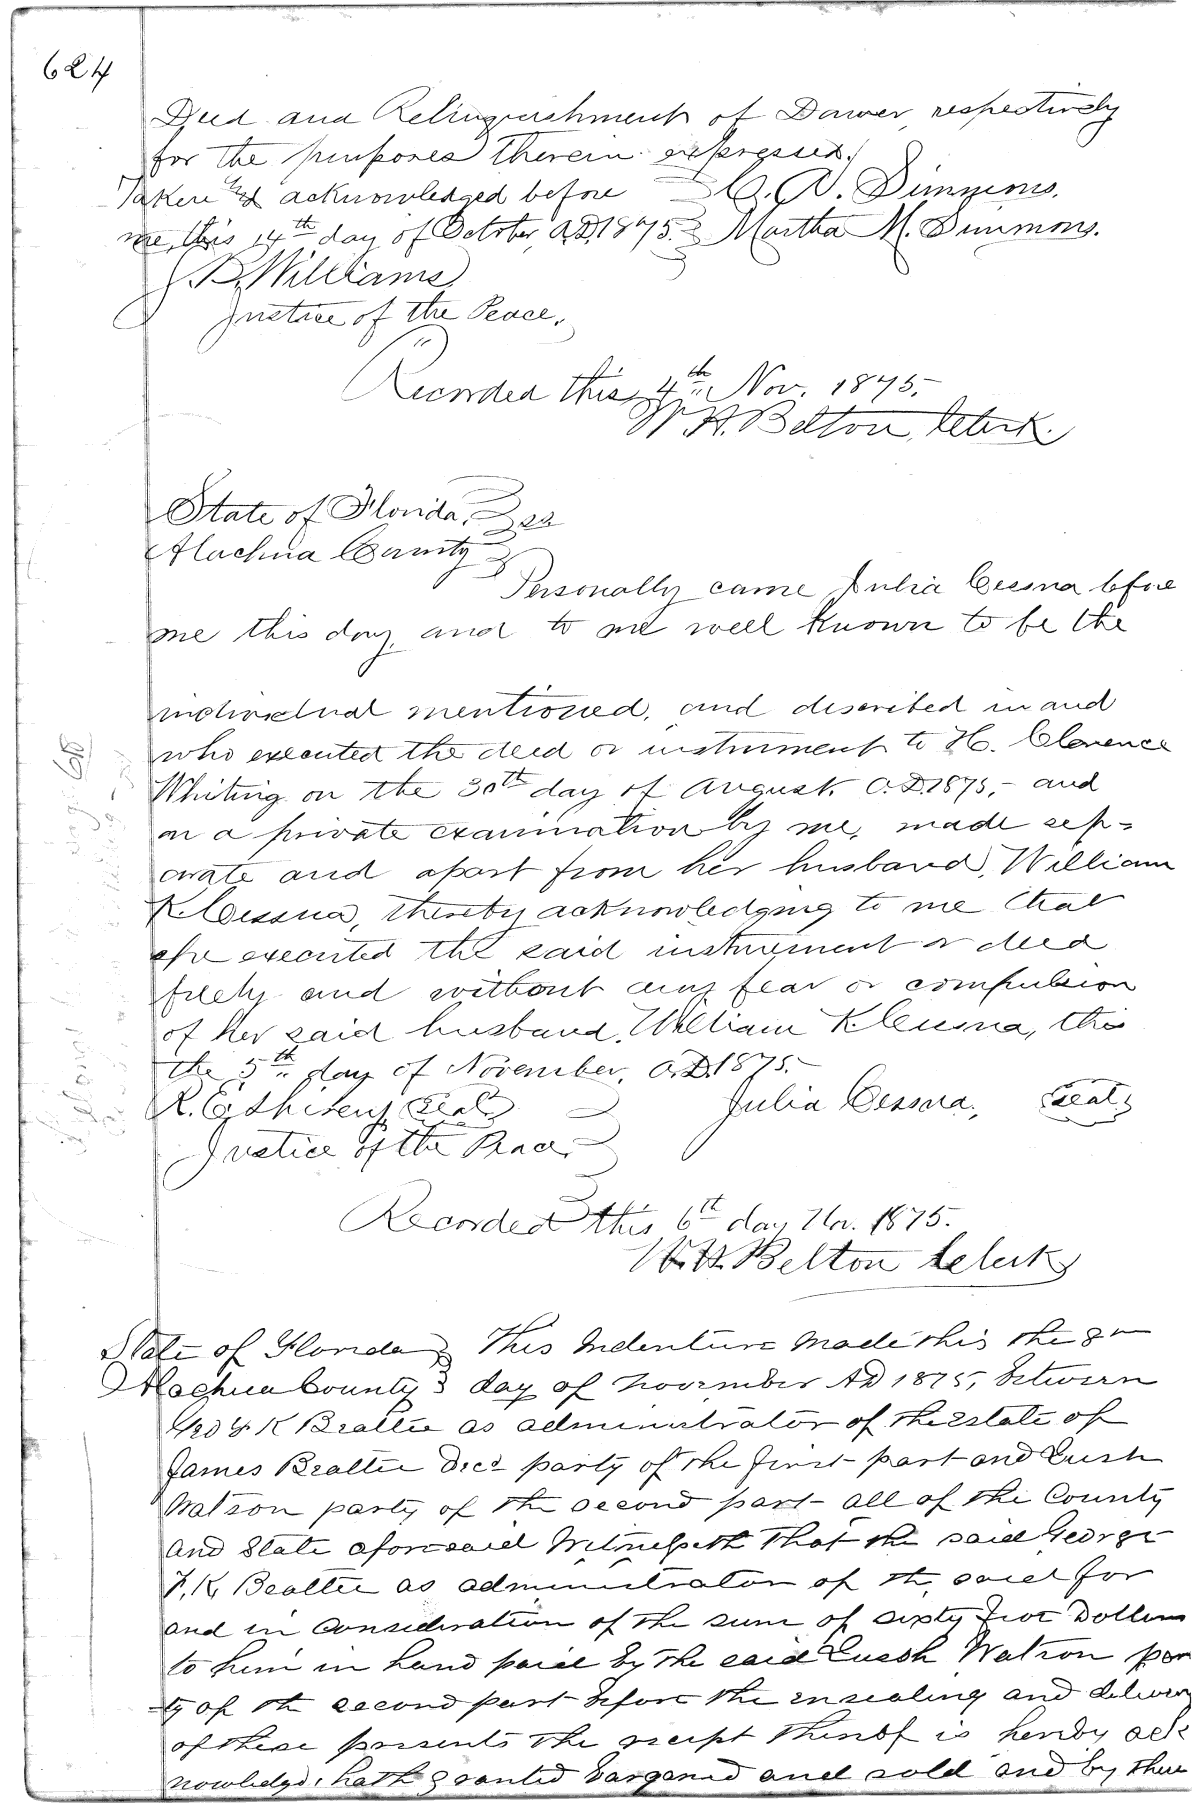 624
Deed and Relinquishment of Dower, respectively
for the purposes therein expressed.
Taken and acknowledged before C. A. Simmons.
me, this 14th day of October, A.D. 1875. Martha M. Simmons.
J. B. Williams
Justice of the Peace.
Recorded this 4th Nov. 1875.
W. H. Belton, Clerk.
State of Florida, ss
Alachua County
Personally came Julia Cessna before
me this day, and to me well known to be the
individual mentioned, and described in and
who executed the deed or instrument to H. Clarence
Whiting on the 30th day of August, A.D. 1875, - and
on a private examination by me, made sep=
arate and apart from her husband, William
K. Cessna, thereby acknowledging to me that
she executed the said instrument or deed
freely and without any fear or compulsion
of her said husband, William K. Cessna, this
the 5th day of November, A.D. 1875.
R. C. Seal Julia Cessna, Seal
Justice of the Peace.
Recorded this 6th day Nov. 1875.
W. H. Belton Clerk
State of Florida This Indenture made this the 8th
Alachua County day of November AD 1875, between
Geo F K Beattie as administrator of the Estate of
James Beattie Decd party of the first part and Cush
Watson party of the second part - all of the County
and State aforesaid Witnesseth That the said George
F. K. Beattie as administrator of the said for
and in consideration of the sum of sixty five Dollars
to him in hand paid by the said Cush Watson par
ty of the second part before the ensealing and delivery
of these presents the receipt thereof is hereby ack
nowledged, hath granted bargened and sold and by these